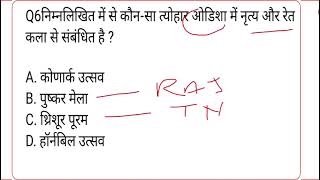 Q6निम्नलिखित में से कौन-सा त्योहार ओडिशा में नृत्य और रेत
कला से संबंधित है ?
A. कोणार्क उत्सव
B. पुष्कर मेला — RAJ
C. थ्रिशूर पूरम — TN
D. हॉर्नबिल उत्सव